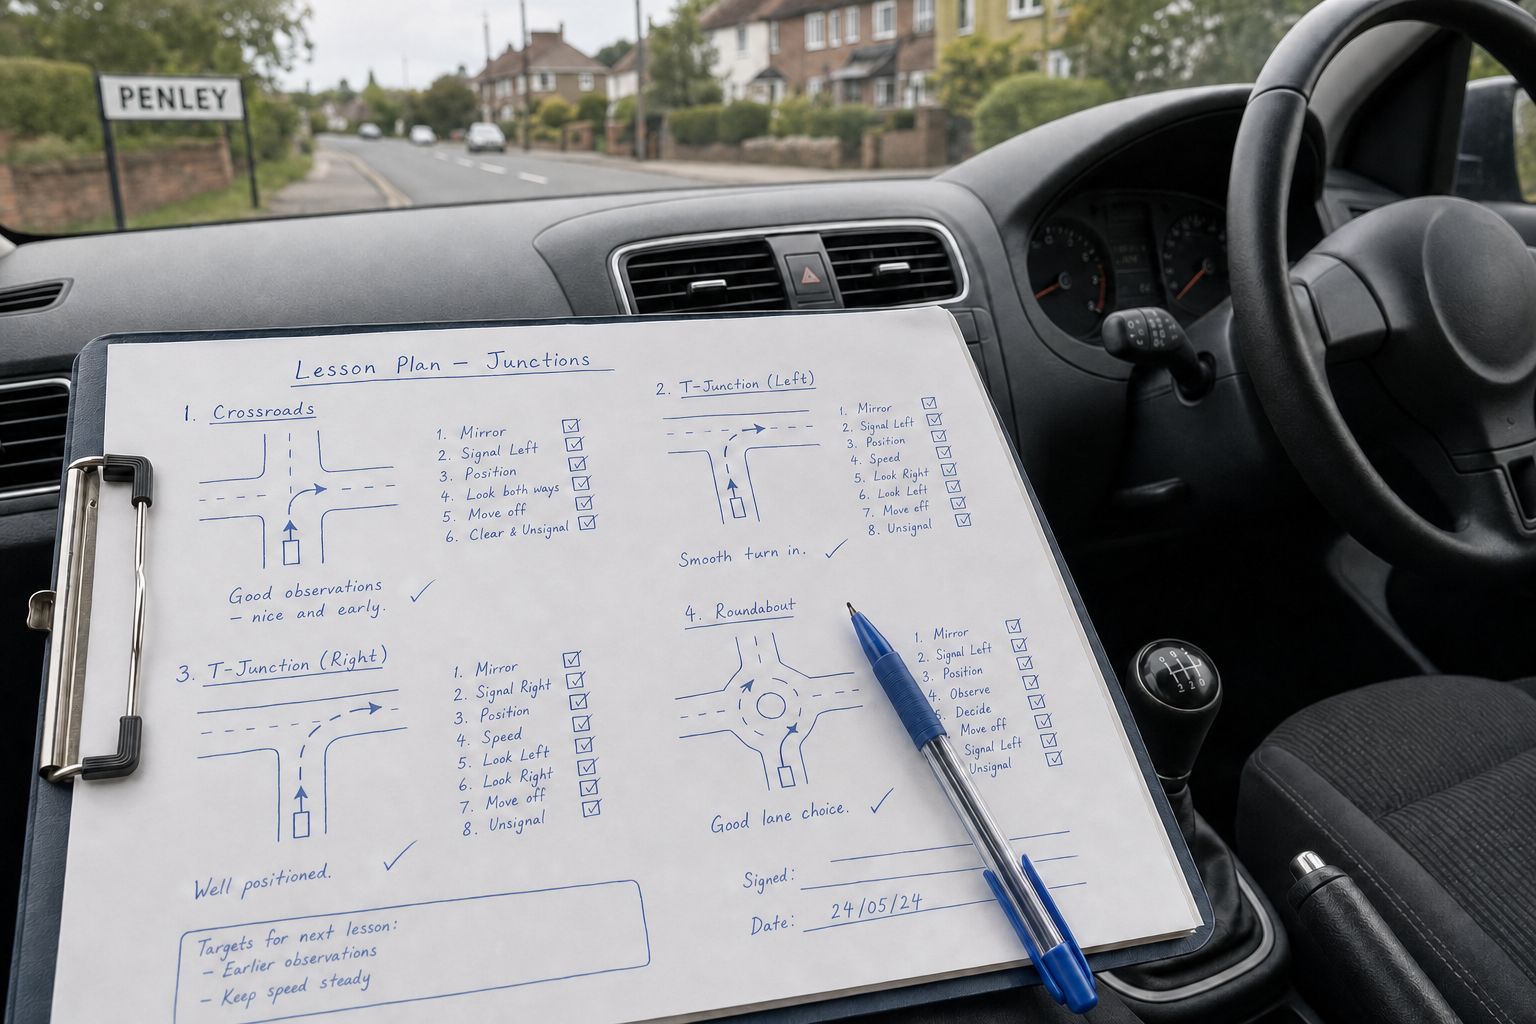 PENLEY
Lesson Plan – Junctions
1. Crossroads
1. Mirror
2. Signal Left
3. Position
4. Look both ways
5. Move off
6. Clear & Unsignal
Good observations
– nice and early.
2. T-Junction (Left)
1. Mirror
2. Signal Left
3. Position
4. Speed
5. Look Right
6. Look Left
7. Move off
8. Unsignal
Smooth turn in.
3. T-Junction (Right)
1. Mirror
2. Signal Right
3. Position
4. Speed
5. Look Left
6. Look Right
7. Move off
8. Unsignal
Well positioned.
4. Roundabout
1. Mirror
2. Signal Left
3. Position
4. Observe
5. Decide
Move off
Signal Left
Unsignal
Good lane choice.
Signed:
Date: 24/05/24
Targets for next lesson:
– Earlier observations
– Keep speed steady